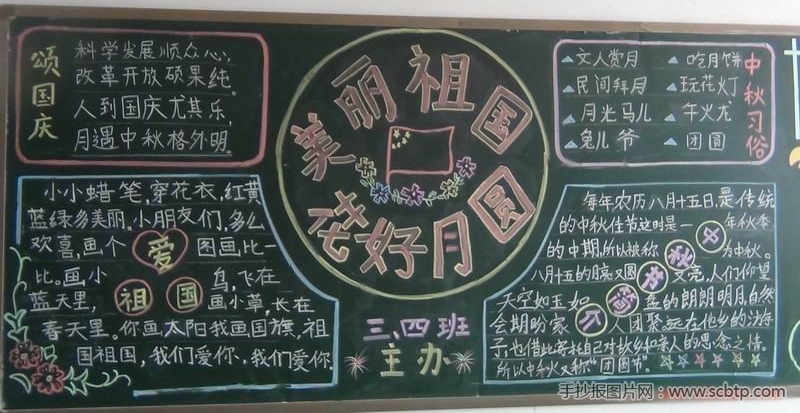 颂国庆
科学发展顺众心,
改革开放硕果纯。
人到国庆尤其乐,
月遇中秋格外明。
美丽祖国
花好月圆
三、四班
主办
中秋习俗
文人赏月 吃月饼
民间拜月 玩花灯
月光马儿 午火龙
兔儿爷 团圆
小小蜡笔,穿花衣,红黄
蓝绿多美丽。小朋友们,多么
欢喜,画个 图画比一
比。画,小 鸟,飞在
蓝天里, 画小草,长在
春天里。你画,太阳我画国旗,祖
国祖国,我们爱你、我们爱你.
爱
祖国
每年农历八月十五日,是传统
的中秋佳节这时是一 年秋季
的中期,所以被称 为中秋。
八月十五的月亮又圆 又亮,人们仰望
天空如玉如 盘的朗朗明月,自然
会期盼家 人团聚。远在他乡的游
子,也借此寄托自己对故乡和亲人的思念之情。
所以中秋又称“团圆节”。
中秋节简介
手抄报图片网:www.scbtp.com